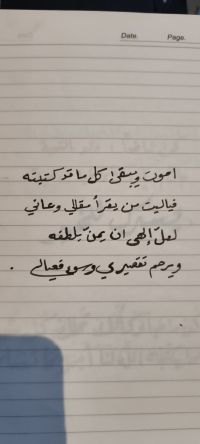 Date.
Page.
اموت ويبقى كل ما قد كتبته
فياليت من يقرأ مقالي دعاني
لعل إلهي ان يمن بلطفه
ويرحم تقصيري وسوء فعالي .